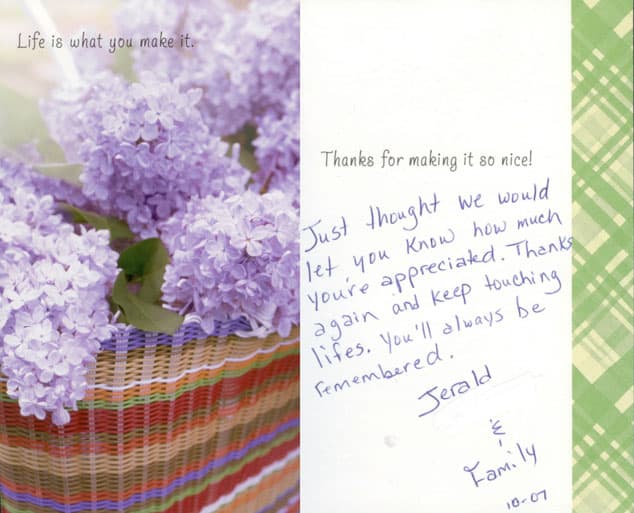 Life is what you make it.
Thanks for making it so nice!
Just thought we would
let you know how much
you're appreciated. Thanks
again and keep touching
lifes. You'll always be
remembered.
Jerald
&
Family
10-07